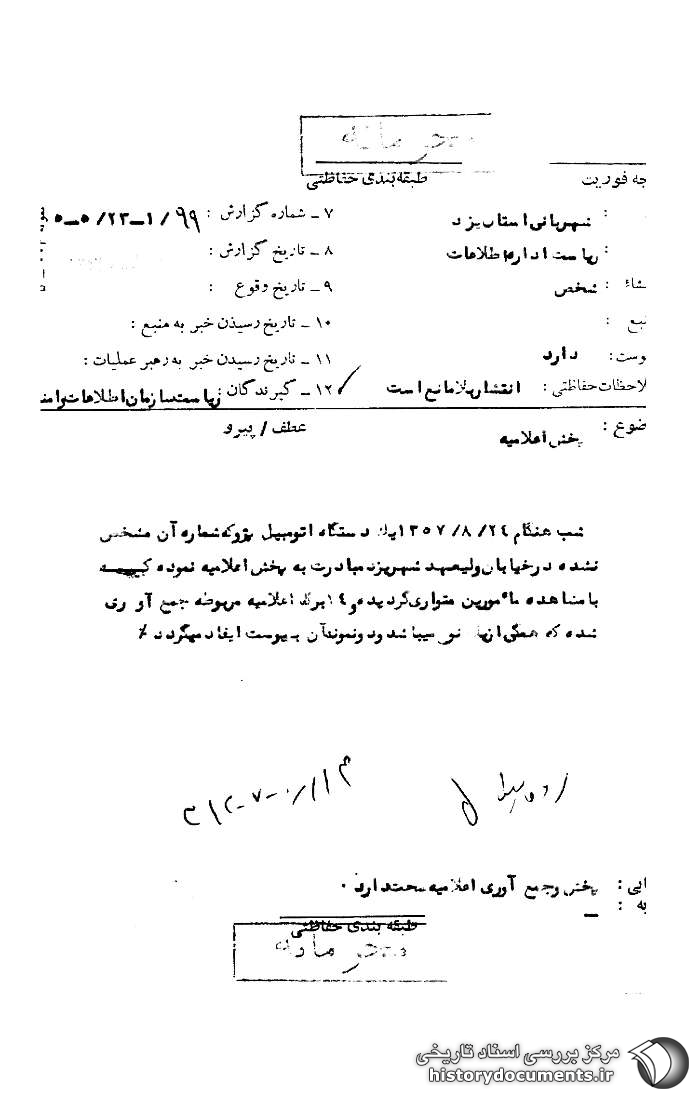 محرمانه
طبقه‌بندی حفاظتی
جه فوریت
: شهربانی استان یزد
: ریاست اداره اطلاعات
شاء : شخص
نبع :
وست : دارد
لاحظات حفاظتی : انتشار بلامانع است
۷ ـ شماره گزارش : ۹۹/ ۱ـ۲۳/ ۵ـ۵
۸ ـ تاریخ گزارش :
۹ ـ تاریخ وقوع :
۱۰ ـ تاریخ رسیدن خبر به منبع :
۱۱ ـ تاریخ رسیدن خبر به رهبر عملیات :
۱۲ ـ گیرندگان : ریاست سازمان اطلاعات وامنـ
ضوع : پخش اعلامیه
عطف / پیرو
شب هنگام ۲۴/ ۸/ ۱۳۵۷ یک دستگاه اتومبیل پژو که شماره آن مشخص
نشده در خیابان ولیعهد شهر یزد مبادرت به پخش اعلامیه نموده کـــه
با مشاهده مأمورین متواری گردیده و ۱۴ برگ اعلامیه مربوطه جمع آوری
شده که همگی از یک نوع میباشد ونمونه آن به پیوست ایفاد میگردد ٪
ابی : پخش وجمع آوری اعلامیه صحت دارد ۰
به : ـ
طبقه بندی حفاظتی
محرمانه
مرکز بررسی اسناد تاریخی
historydocuments.ir